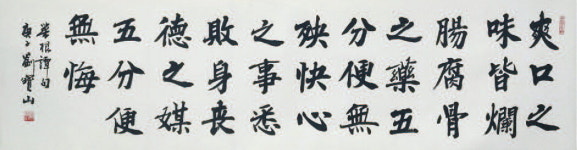 爽口之
味皆爛
腸腐骨
之藥五
分便無
殃快心
之事悉
敗身喪
德之媒
五分便
無悔
菜根譚句
庚子劉寶山